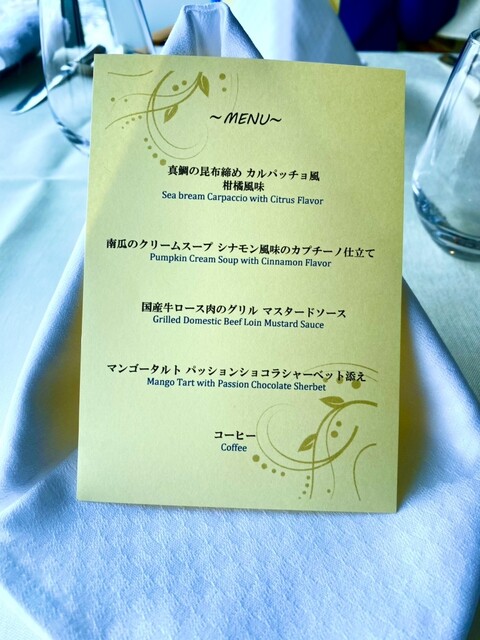 ～MENU～
真鯛の昆布締め カルパッチョ風
柑橘風味
Sea bream Carpaccio with Citrus Flavor
南瓜のクリームスープ シナモン風味のカプチーノ仕立て
Pumpkin Cream Soup with Cinnamon Flavor
国産牛ロース肉のグリル マスタードソース
Grilled Domestic Beef Loin Mustard Sauce
マンゴータルト パッションショコラシャーベット添え
Mango Tart with Passion Chocolate Sherbet
コーヒー
Coffee